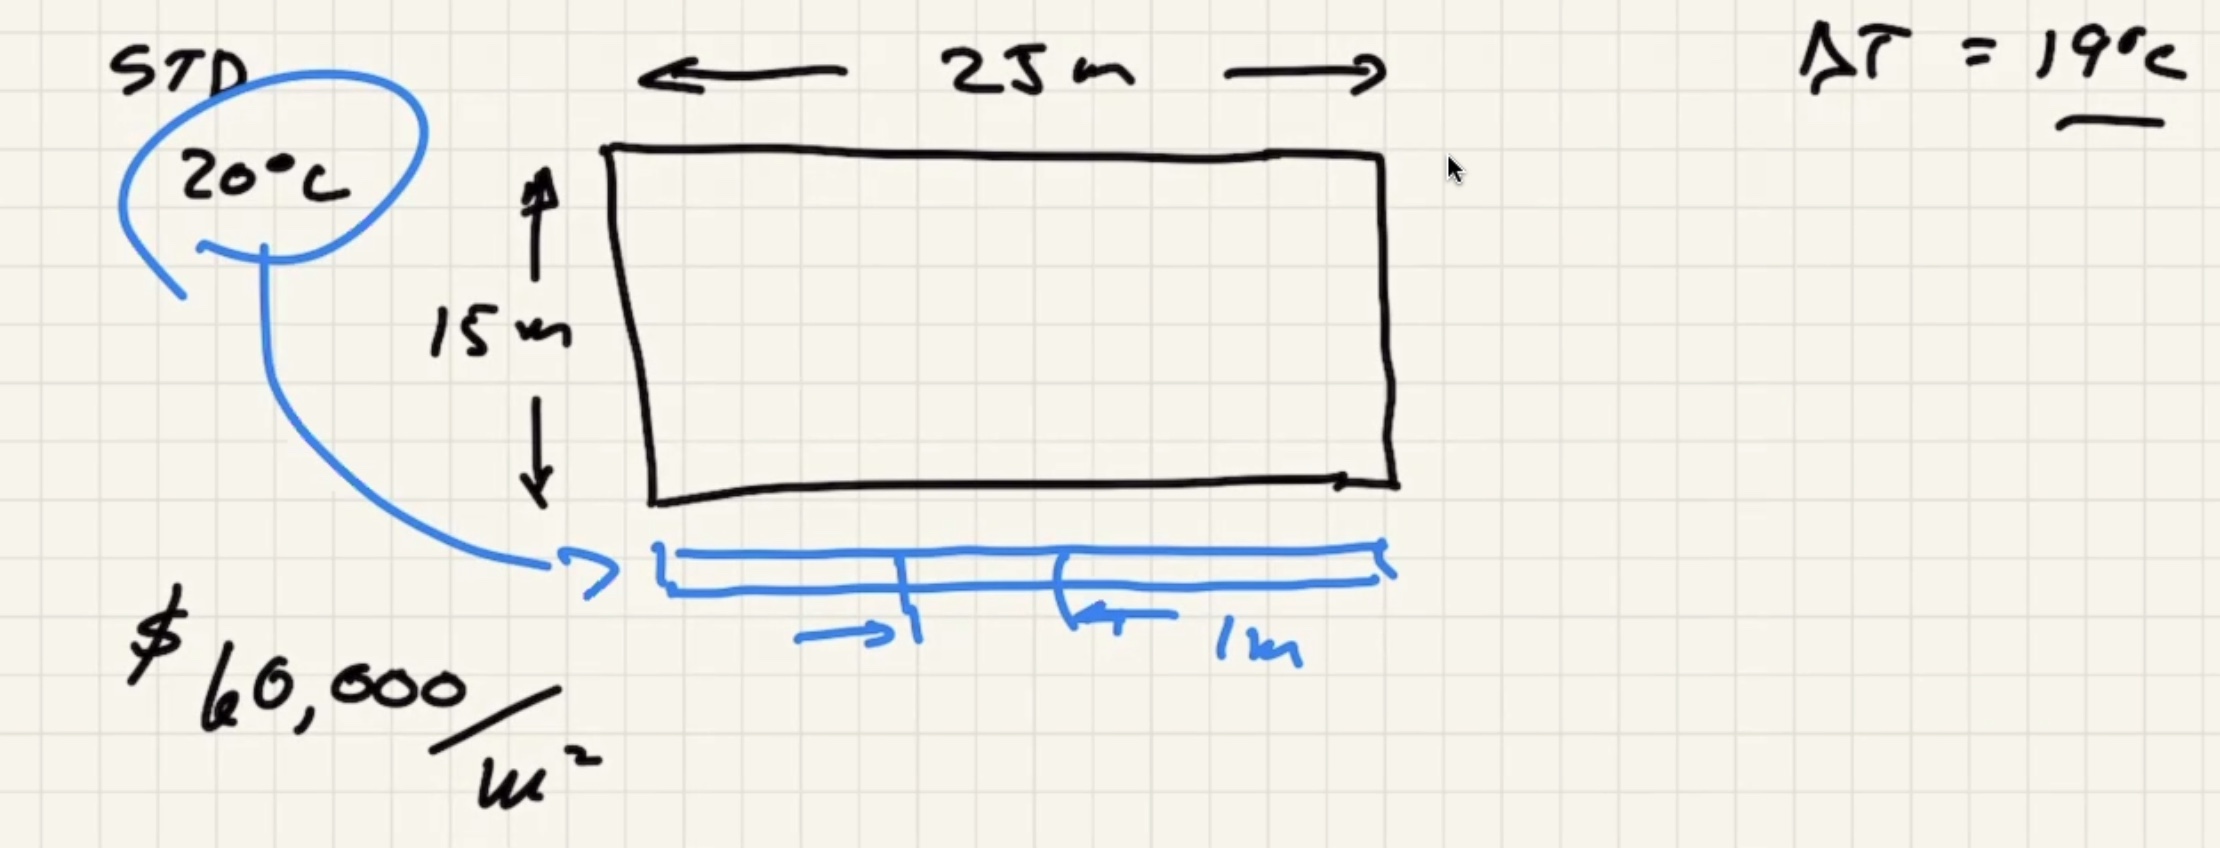 STD
20°C
25 m
ΔT = 19°C
15 m
1m
$ 60,000/m²